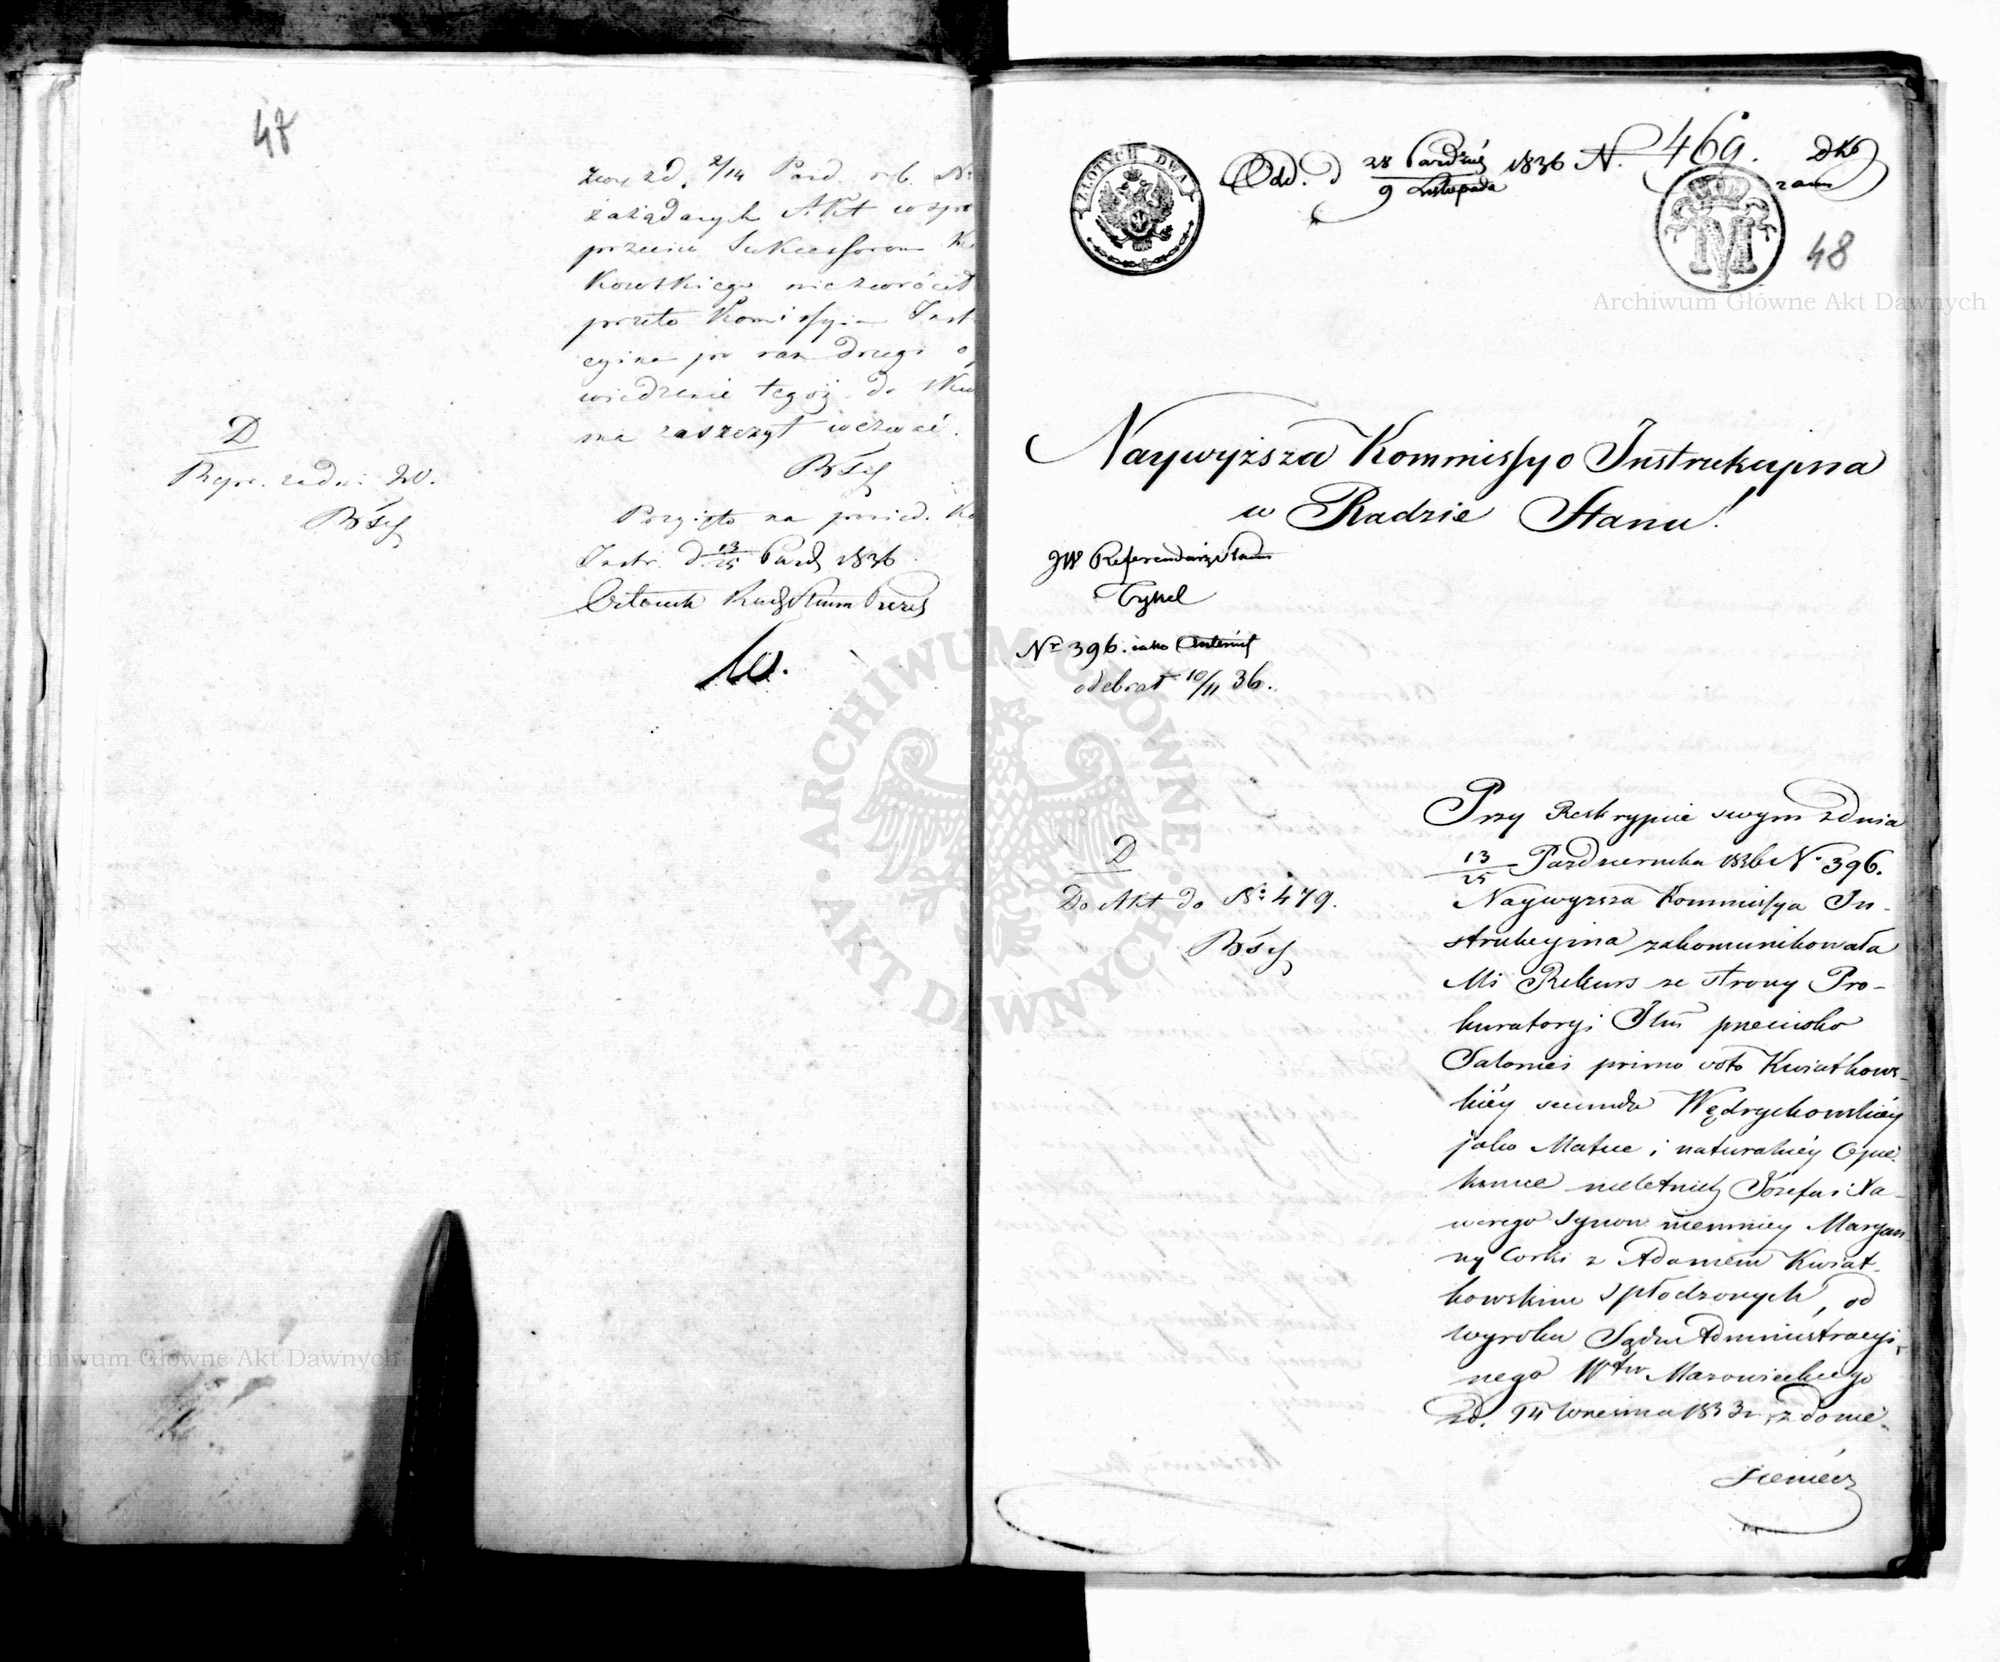 47
zwy zd. 2/14 Pazd. r. b. Nr
zażądanych Akt w spra
przeciw Sukcessorom Kwi
kowskiego niezwrócił
przeto Kommissyia Instr
cyjna po raz drugi o
wiedzenie tegoż do
ma zaszczyt wezwać.
D
Repr. za dni 20.
Przyięto na posied. Ko
Instr. d. 13/25 Pazd. 1836
Członek Rady Stanu Prezes
ZŁOTYCH DWA
Odd. d 28 Paźdź / 9 Listopada 1836 N. 469.
M
48
Naywyższa Kommissyo Instrukcyina
w Radzie Stanu!
JW Referendarz Stanu
Tykel
Nr 396. iako
odebrał 10/11 36.
D
Do Akt do Nr 479.
Przy Reskrypcie swym z dnia
13/25 Pazdziernika 1836 N. 396.
Naywyzsza Kommissya In-
strukcyina zakomunikowała
Mi Rekurs ze strony Pro-
kuratoryi Jlney przeciwko
Salomei primo voto Kwiatkows-
kiéy secundo Wędrychowskiéy
jako Matce i naturalnéy Opie-
kunce nieletnich Józefa i Xa-
werego Synow niemniey Maryan
ny Corki z Adamem Kwiat-
kowskim spłodzonych, od
wyroku Sądu Administracyi-
nego Wtwa Mazowieckiego
zd. 14 Wrzesnia 1833 r. z donie-
sieniem
Archiwum Główne Akt Dawnych
Archiwum Główne Akt Dawnych
ARCHIWUM GŁÓWNE · AKT DAWNYCH ·